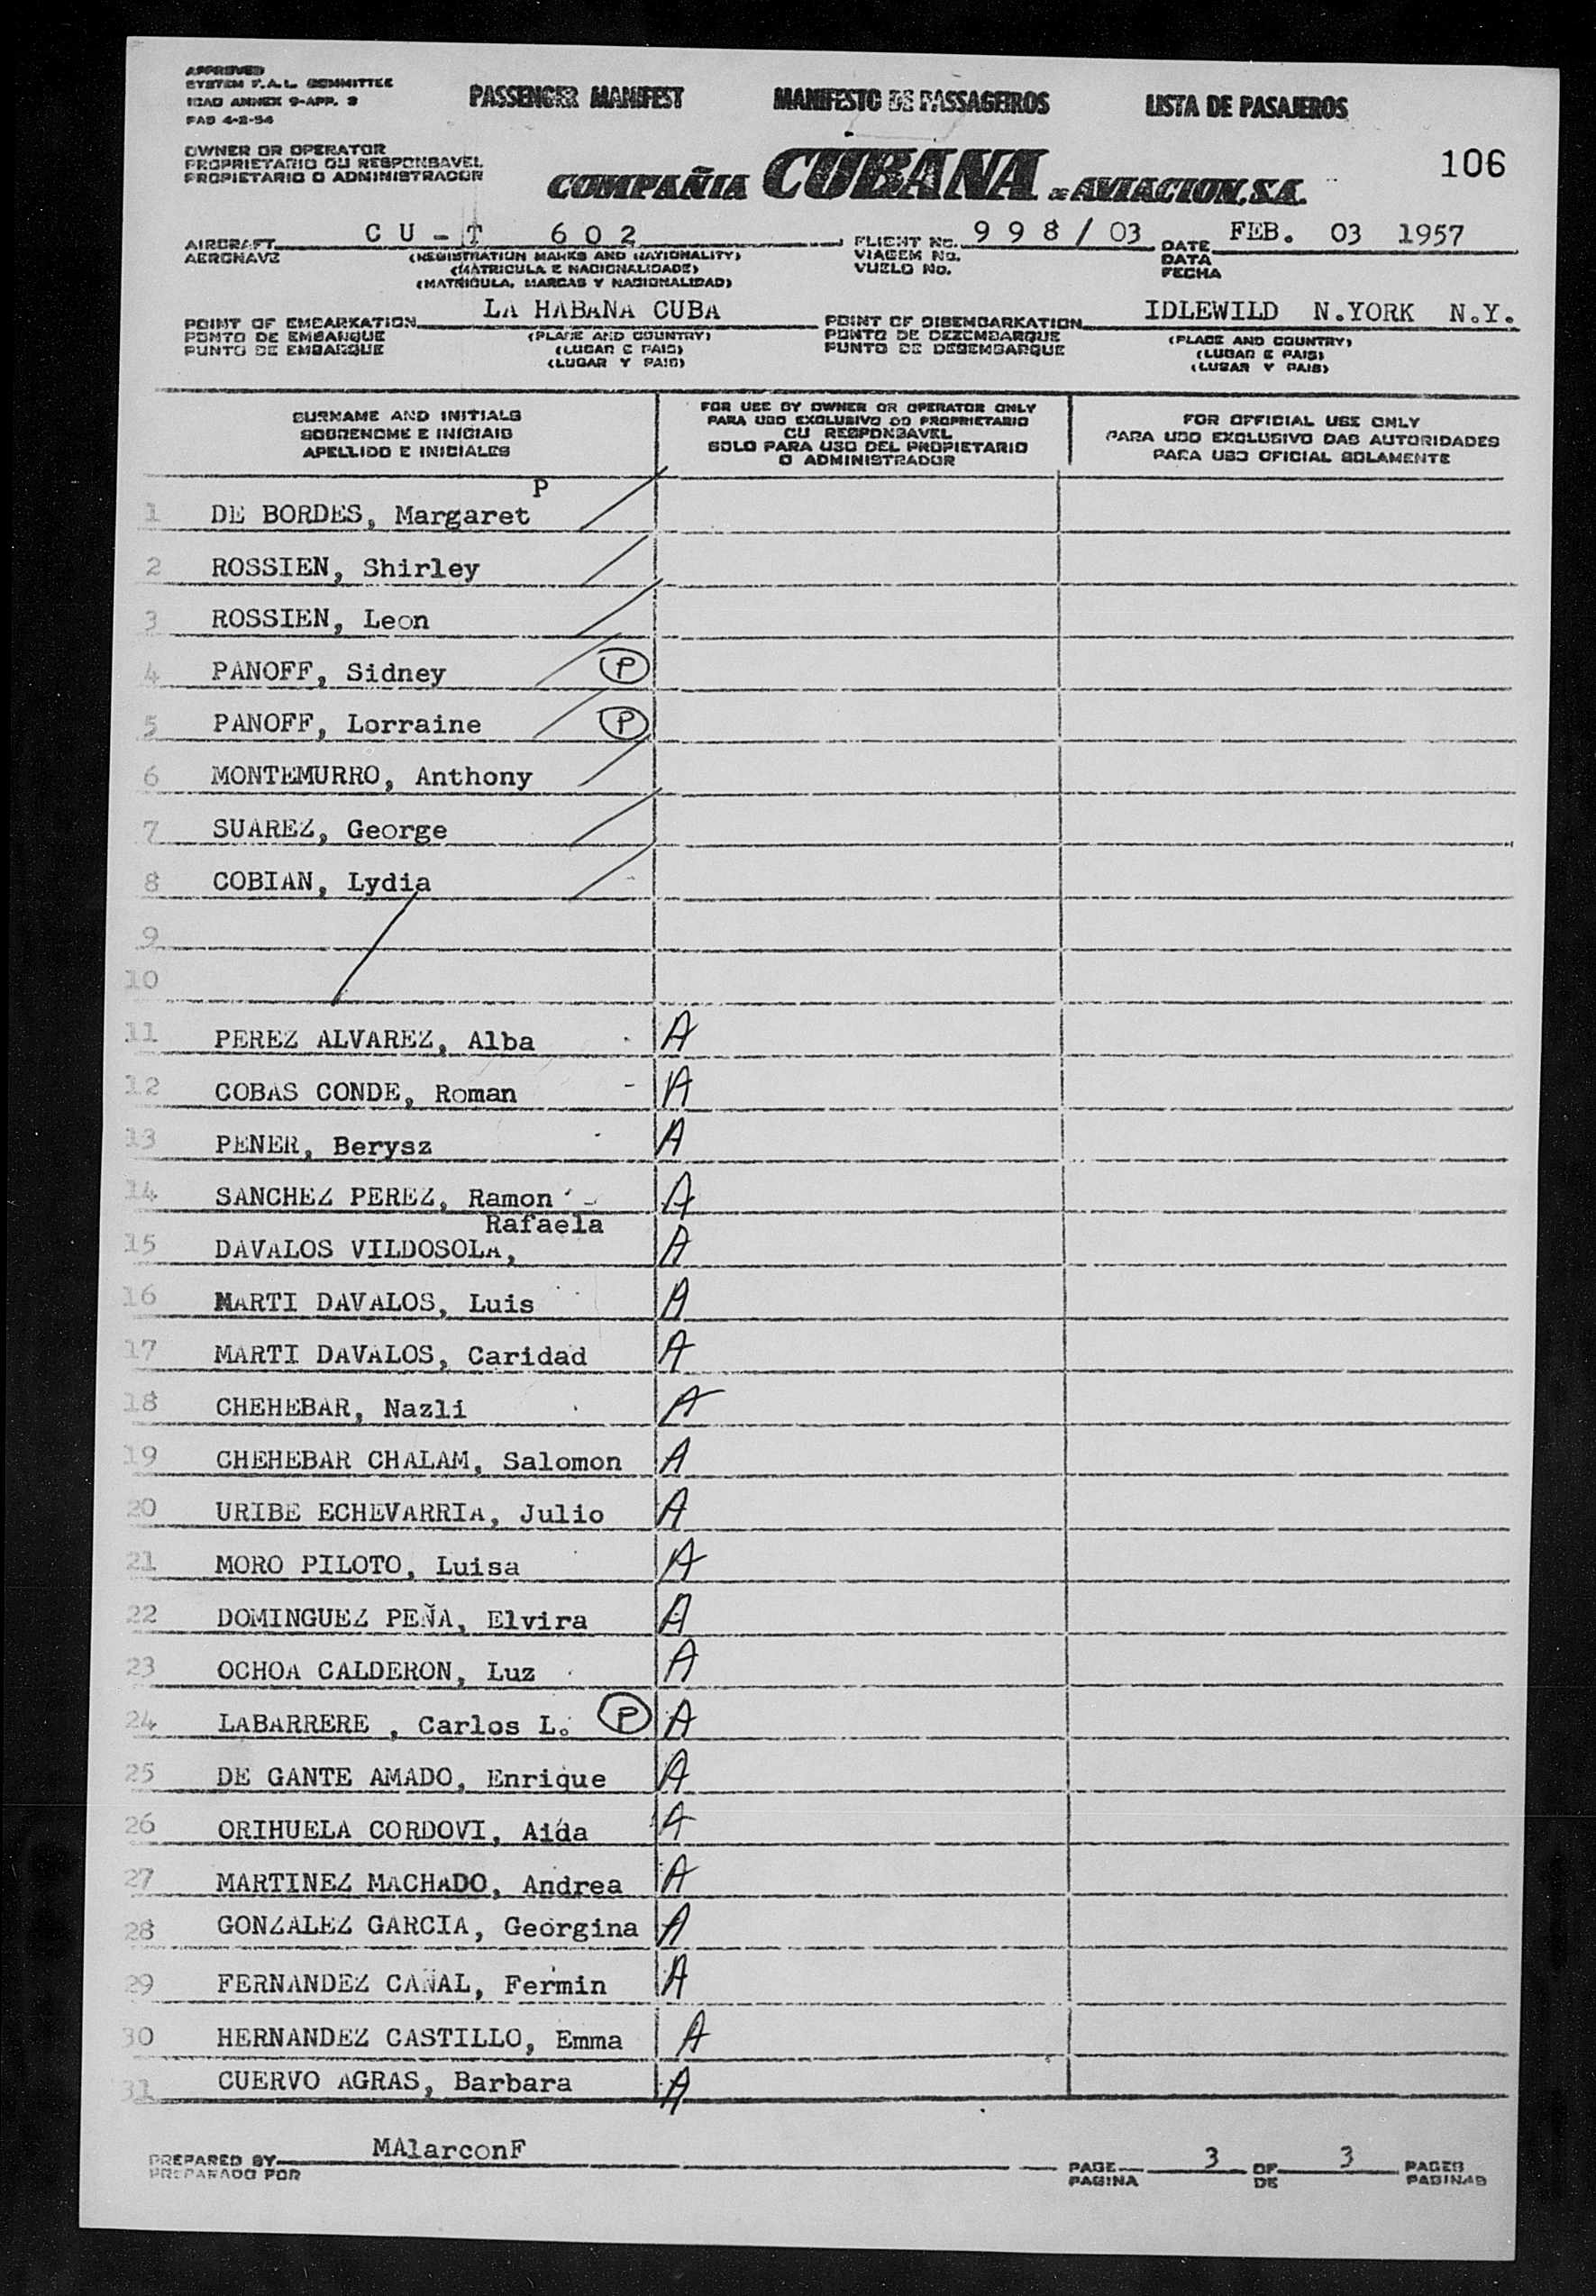 APPROVED
SYSTEM F.A.L. COMMITTEE
ICAO ANNEX 9-APP. 3
PAD 4-2-54
PASSENGER MANIFEST MANIFESTO DE PASSAGEIROS LISTA DE PASAJEROS
OWNER OR OPERATOR
PROPRIETARIO OU RESPONSAVEL
PROPIETARIO O ADMINISTRADOR
COMPAÑIA CUBANA DE AVIACION, S.A.
106
AIRCRAFT CU-T 602 FLIGHT NO. 998/03 DATE FEB. 03 1957
AERONAVE (REGISTRATION MARKS AND NATIONALITY) VIAGEM NO. DATA
(MATRICULA E NACIONALIDADE) VUELO NO. FECHA
(MATRICULA, MARCAS Y NACIONALIDAD)
POINT OF EMBARKATION LA HABANA CUBA POINT OF DISEMBARKATION IDLEWILD N.YORK N.Y.
PONTO DE EMBARQUE (PLACE AND COUNTRY) PONTO DE DEZEMBARQUE (PLACE AND COUNTRY)
PUNTO DE EMBARQUE (LUGAR E PAIS) PUNTO DE DESEMBARQUE (LUGAR E PAIS)
(LUGAR Y PAIS) (LUGAR Y PAIS)
SURNAME AND INITIALS
SOBRENOME E INICIAIS
APELLIDO E INICIALES
FOR USE BY OWNER OR OPERATOR ONLY
PARA USO EXCLUSIVO DO PROPRIETARIO
OU RESPONSAVEL
SOLO PARA USO DEL PROPIETARIO
O ADMINISTRADOR
FOR OFFICIAL USE ONLY
PARA USO EXCLUSIVO DAS AUTORIDADES
PARA USO OFICIAL SOLAMENTE
P
1 DE BORDES, Margaret
2 ROSSIEN, Shirley
3 ROSSIEN, Leon
4 PANOFF, Sidney P
5 PANOFF, Lorraine P
6 MONTEMURRO, Anthony
7 SUAREZ, George
8 COBIAN, Lydia
9
10
11 PEREZ ALVAREZ, Alba A
12 COBAS CONDE, Roman A
13 PENER, Berysz A
14 SANCHEZ PEREZ, Ramon A
Rafaela
15 DAVALOS VILDOSOLA, A
16 MARTI DAVALOS, Luis A
17 MARTI DAVALOS, Caridad A
18 CHEHEBAR, Nazli A
19 CHEHEBAR CHALAM, Salomon A
20 URIBE ECHEVARRIA, Julio A
21 MORO PILOTO, Luisa A
22 DOMINGUEZ PEÑA, Elvira A
23 OCHOA CALDERON, Luz A
24 LABARRERE , Carlos L. P A
25 DE GANTE AMADO, Enrique A
26 ORIHUELA CORDOVI, Aida A
27 MARTINEZ MACHADO, Andrea A
28 GONZALEZ GARCIA, Georgina A
29 FERNANDEZ CAÑAL, Fermin A
30 HERNANDEZ CASTILLO, Emma A
31 CUERVO AGRAS, Barbara A
PREPARED BY MAlarconF PAGE 3 OF 3 PAGES
PREPARADO POR PAGINA DE PAGINAS